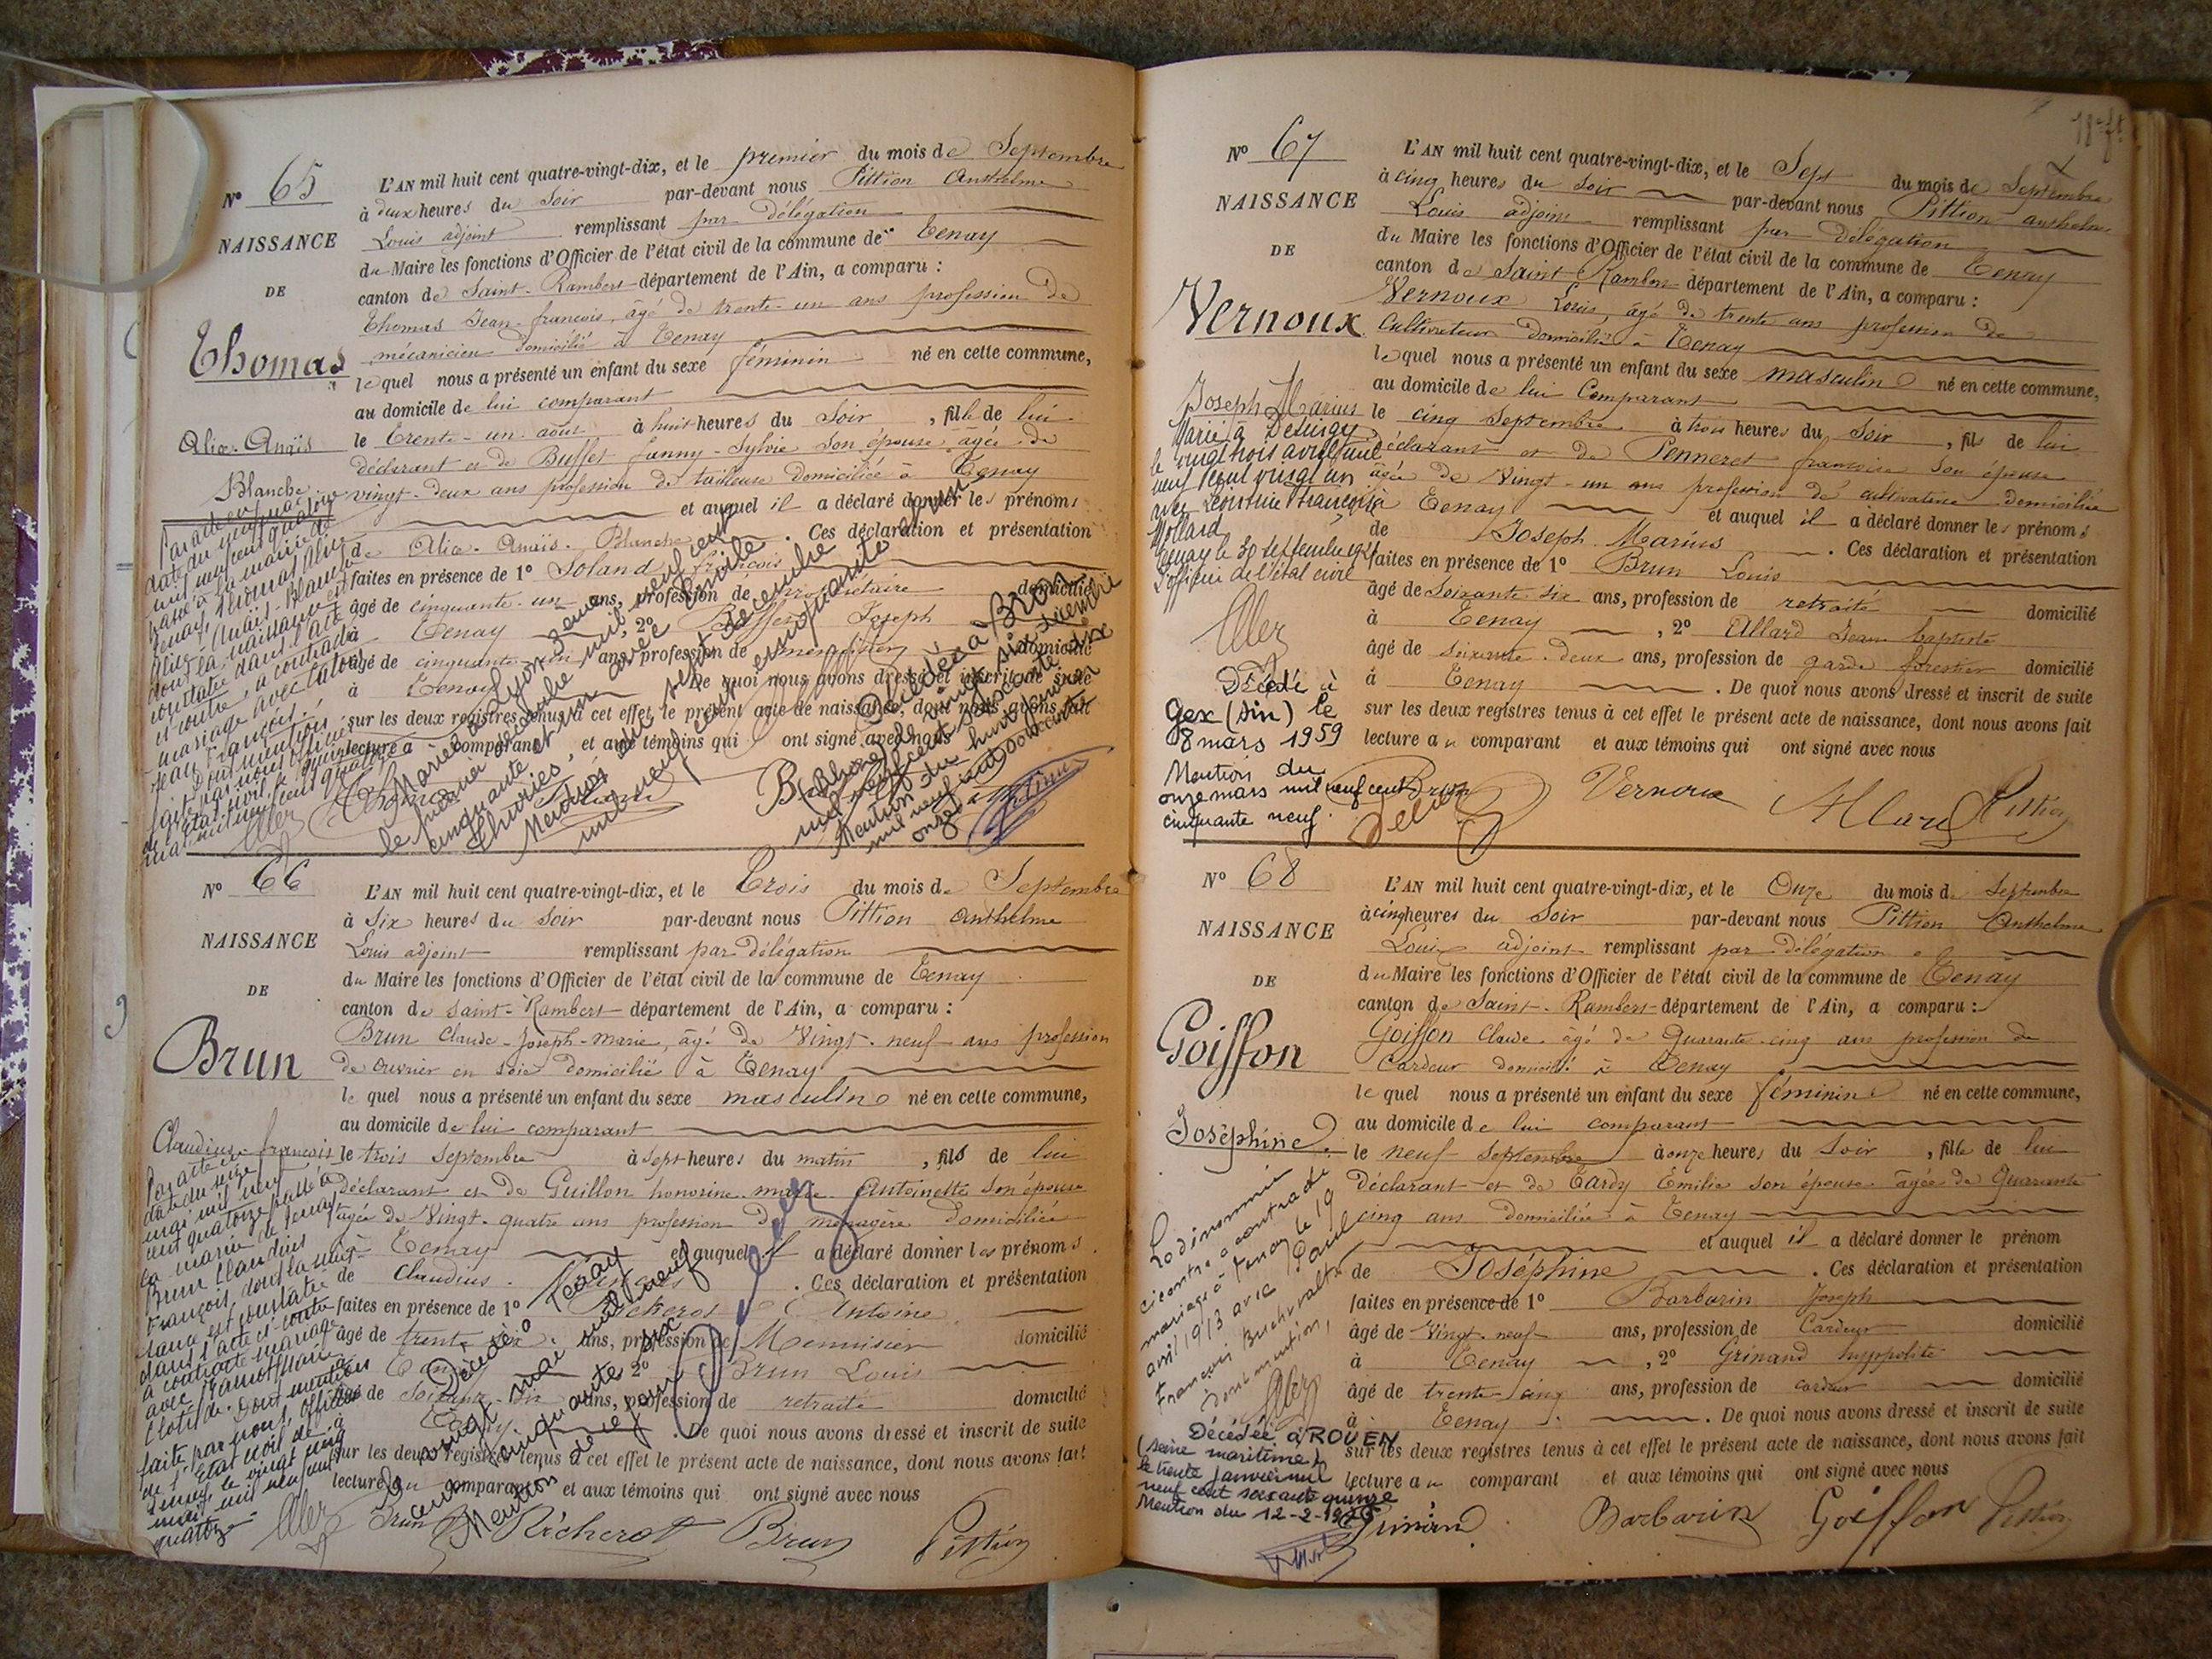 N° 65
NAISSANCE
DE
Thomas
Alice-Anaïs
Blanche
L'AN mil huit cent quatre-vingt-dix, et le premier du mois de Septembre
à deux heures du Soir par-devant nous Pittion Anthelme
Louis adjoint remplissant par délégation
du Maire les fonctions d'Officier de l'état civil de la commune de Tenay
canton de Saint-Rambert département de l'Ain, a comparu :
Thomas Jean-françois, âgé de trente-un ans profession de
mécanicien domicilié à Tenay
lequel nous a présenté un enfant du sexe féminin né en cette commune,
au domicile de lui comparant
le trente-un août à huit heures du Soir, fille de lui
déclarant et de Buffet fanny-Sylvie son épouse âgée de
vingt-deux ans profession de tailleuse domiciliée à Tenay
et auquel il a déclaré donner les prénoms
de Alice-Anaïs-Blanche. Ces déclaration et présentation
faites en présence de 1° Soland françois
âgé de cinquante-un ans, profession de propriétaire domicilié
à Tenay, 2° Buffet Joseph
âgé de cinquante ans, profession de domicilié
à Tenay. De quoi nous avons dressé et inscrit de suite
sur les deux registres tenus à cet effet le présent acte de naissance, dont nous avons fait
lecture au comparant et aux témoins qui ont signé avec nous
Par acte en
date du quinze mai
mil neuf cent quatorze
passé à la mairie de
Tenay, Thomas Alice
Anaïs-Blanche
dont la naissance est
constatée dans l'acte
ci-contre, a contracté
mariage avec
Jean François.
Dont mention
faite par nous officier
de l'état civil, le quinze
mai mil neuf cent quatorze
Aller
Mariée à Lyon
le premier décembre mil neuf cent
cinquante et un avec Emile
Mention du sept décembre
mil neuf cent cinquante et un
Décédée à Bron
(Rhône) le vingt six décembre
mil neuf cent soixante dix
Mention du huit janvier
mil neuf cent soixante
onze
N° 66
NAISSANCE
DE
Brun
Claudius-françois
L'AN mil huit cent quatre-vingt-dix, et le Trois du mois de Septembre
à Six heures du Soir par-devant nous Pittion Anthelme
Louis adjoint remplissant par délégation
du Maire les fonctions d'Officier de l'état civil de la commune de Tenay
canton de Saint-Rambert département de l'Ain, a comparu :
Brun Claude-Joseph-Marie, âgé de Vingt-neuf ans profession
de ouvrier en soie domicilié à Tenay
lequel nous a présenté un enfant du sexe masculin né en cette commune,
au domicile de lui comparant
le trois septembre à sept heures du matin, fils de lui
déclarant et de Guillon honorine-marie-Antoinette son épouse
âgée de Vingt-quatre ans profession de ménagère domiciliée
à Tenay et auquel il a déclaré donner les prénoms
de Claudius-François. Ces déclaration et présentation
faites en présence de 1° Richerot Antoine
âgé de trente six ans, profession de Menuisier domicilié
à Tenay, 2° Brun Louis
âgé de soixante-six ans, profession de retraité domicilié
à Tenay. De quoi nous avons dressé et inscrit de suite
sur les deux registres tenus à cet effet le présent acte de naissance, dont nous avons fait
lecture au comparant et aux témoins qui ont signé avec nous
Par acte en
date du seize
mai mil neuf
cent quatorze passé à
la mairie de Tenay
Brun Claudius
François, dont la nais-
sance est constatée
dans l'acte ci-contre
a contracté mariage
avec
Clotilde. Dont mention
faite par nous, officier
de l'état civil de
Tenay le vingt cinq
mai mil neuf cent
quatorze
Aller
Décédé à Tenay
le vingt mai mil neuf
cent cinquante six
Mention de ce jour
Brun Richerot Brun Pittion
N° 67
NAISSANCE
DE
Vernoux
Joseph Marius
L'AN mil huit cent quatre-vingt-dix, et le Sept du mois de Septembre
à cinq heures du Soir par-devant nous Pittion anthelme
Louis adjoint remplissant par délégation
du Maire les fonctions d'Officier de l'état civil de la commune de Tenay
canton de Saint Rambert département de l'Ain, a comparu :
Vernoux Louis, âgé de trente ans profession de
Cultivateur domicilié à Tenay
lequel nous a présenté un enfant du sexe masculin né en cette commune,
au domicile de lui Comparant
le cinq Septembre à trois heures du Soir, fils de lui
déclarant et de Penneret françoise son épouse
âgée de Vingt-un ans profession de cultivatrice domiciliée
à Tenay et auquel il a déclaré donner les prénoms
de Joseph Marius. Ces déclaration et présentation
faites en présence de 1° Brun Louis
âgé de Soixante six ans, profession de retraité domicilié
à Tenay, 2° Allard Jean baptiste
âgé de soixante-deux ans, profession de garde forestier domicilié
à Tenay. De quoi nous avons dressé et inscrit de suite
sur les deux registres tenus à cet effet le présent acte de naissance, dont nous avons fait
lecture au comparant et aux témoins qui ont signé avec nous
Marié à
le vingt trois avril mil
neuf cent vingt un
avec Léontine Françoise
Mollard
Tenay le 30 septembre 1921
l'officier de l'état civil
Aller
Décédé à
Gex (Ain) le
8 mars 1959
Mention du
onze mars mil neuf cent
cinquante neuf.
Brun Vernoux Allard Pittion
N° 68
NAISSANCE
DE
Goiffon
Joséphine
L'AN mil huit cent quatre-vingt-dix, et le Onze du mois de Septembre
à cinq heures du Soir par-devant nous Pittion Anthelme
Louis adjoint remplissant par délégation
du Maire les fonctions d'Officier de l'état civil de la commune de Tenay
canton de Saint-Rambert département de l'Ain, a comparu :
Goiffon Claude âgé de Quarante-cinq ans profession de
Cardeur domicilié à Tenay
lequel nous a présenté un enfant du sexe féminin né en cette commune,
au domicile de lui comparant
le neuf Septembre à onze heures du Soir, fille de lui
Déclarant et de Tardy Emilie son épouse âgée de Quarante
cinq ans domiciliée à Tenay
et auquel il a déclaré donner le prénom
de Joséphine. Ces déclaration et présentation
faites en présence de 1° Barbarin Joseph
âgé de Vingt-neuf ans, profession de Cardeur domicilié
à Tenay, 2° Grinand hyppolite
âgé de trente cinq ans, profession de cardeur domicilié
à Tenay. De quoi nous avons dressé et inscrit de suite
sur les deux registres tenus à cet effet le présent acte de naissance, dont nous avons fait
lecture au comparant et aux témoins qui ont signé avec nous
La dénommée
ci contre a contracté
mariage à Tenay le 19
avril 1913 avec Paul
François
Dont mention,
Aller
Décédée à ROUEN
(seine maritime)
le trente janvier mil
neuf cent soixante quinze
Mention du 12-2-1975
Grinand Barbarin Goiffon Pittion